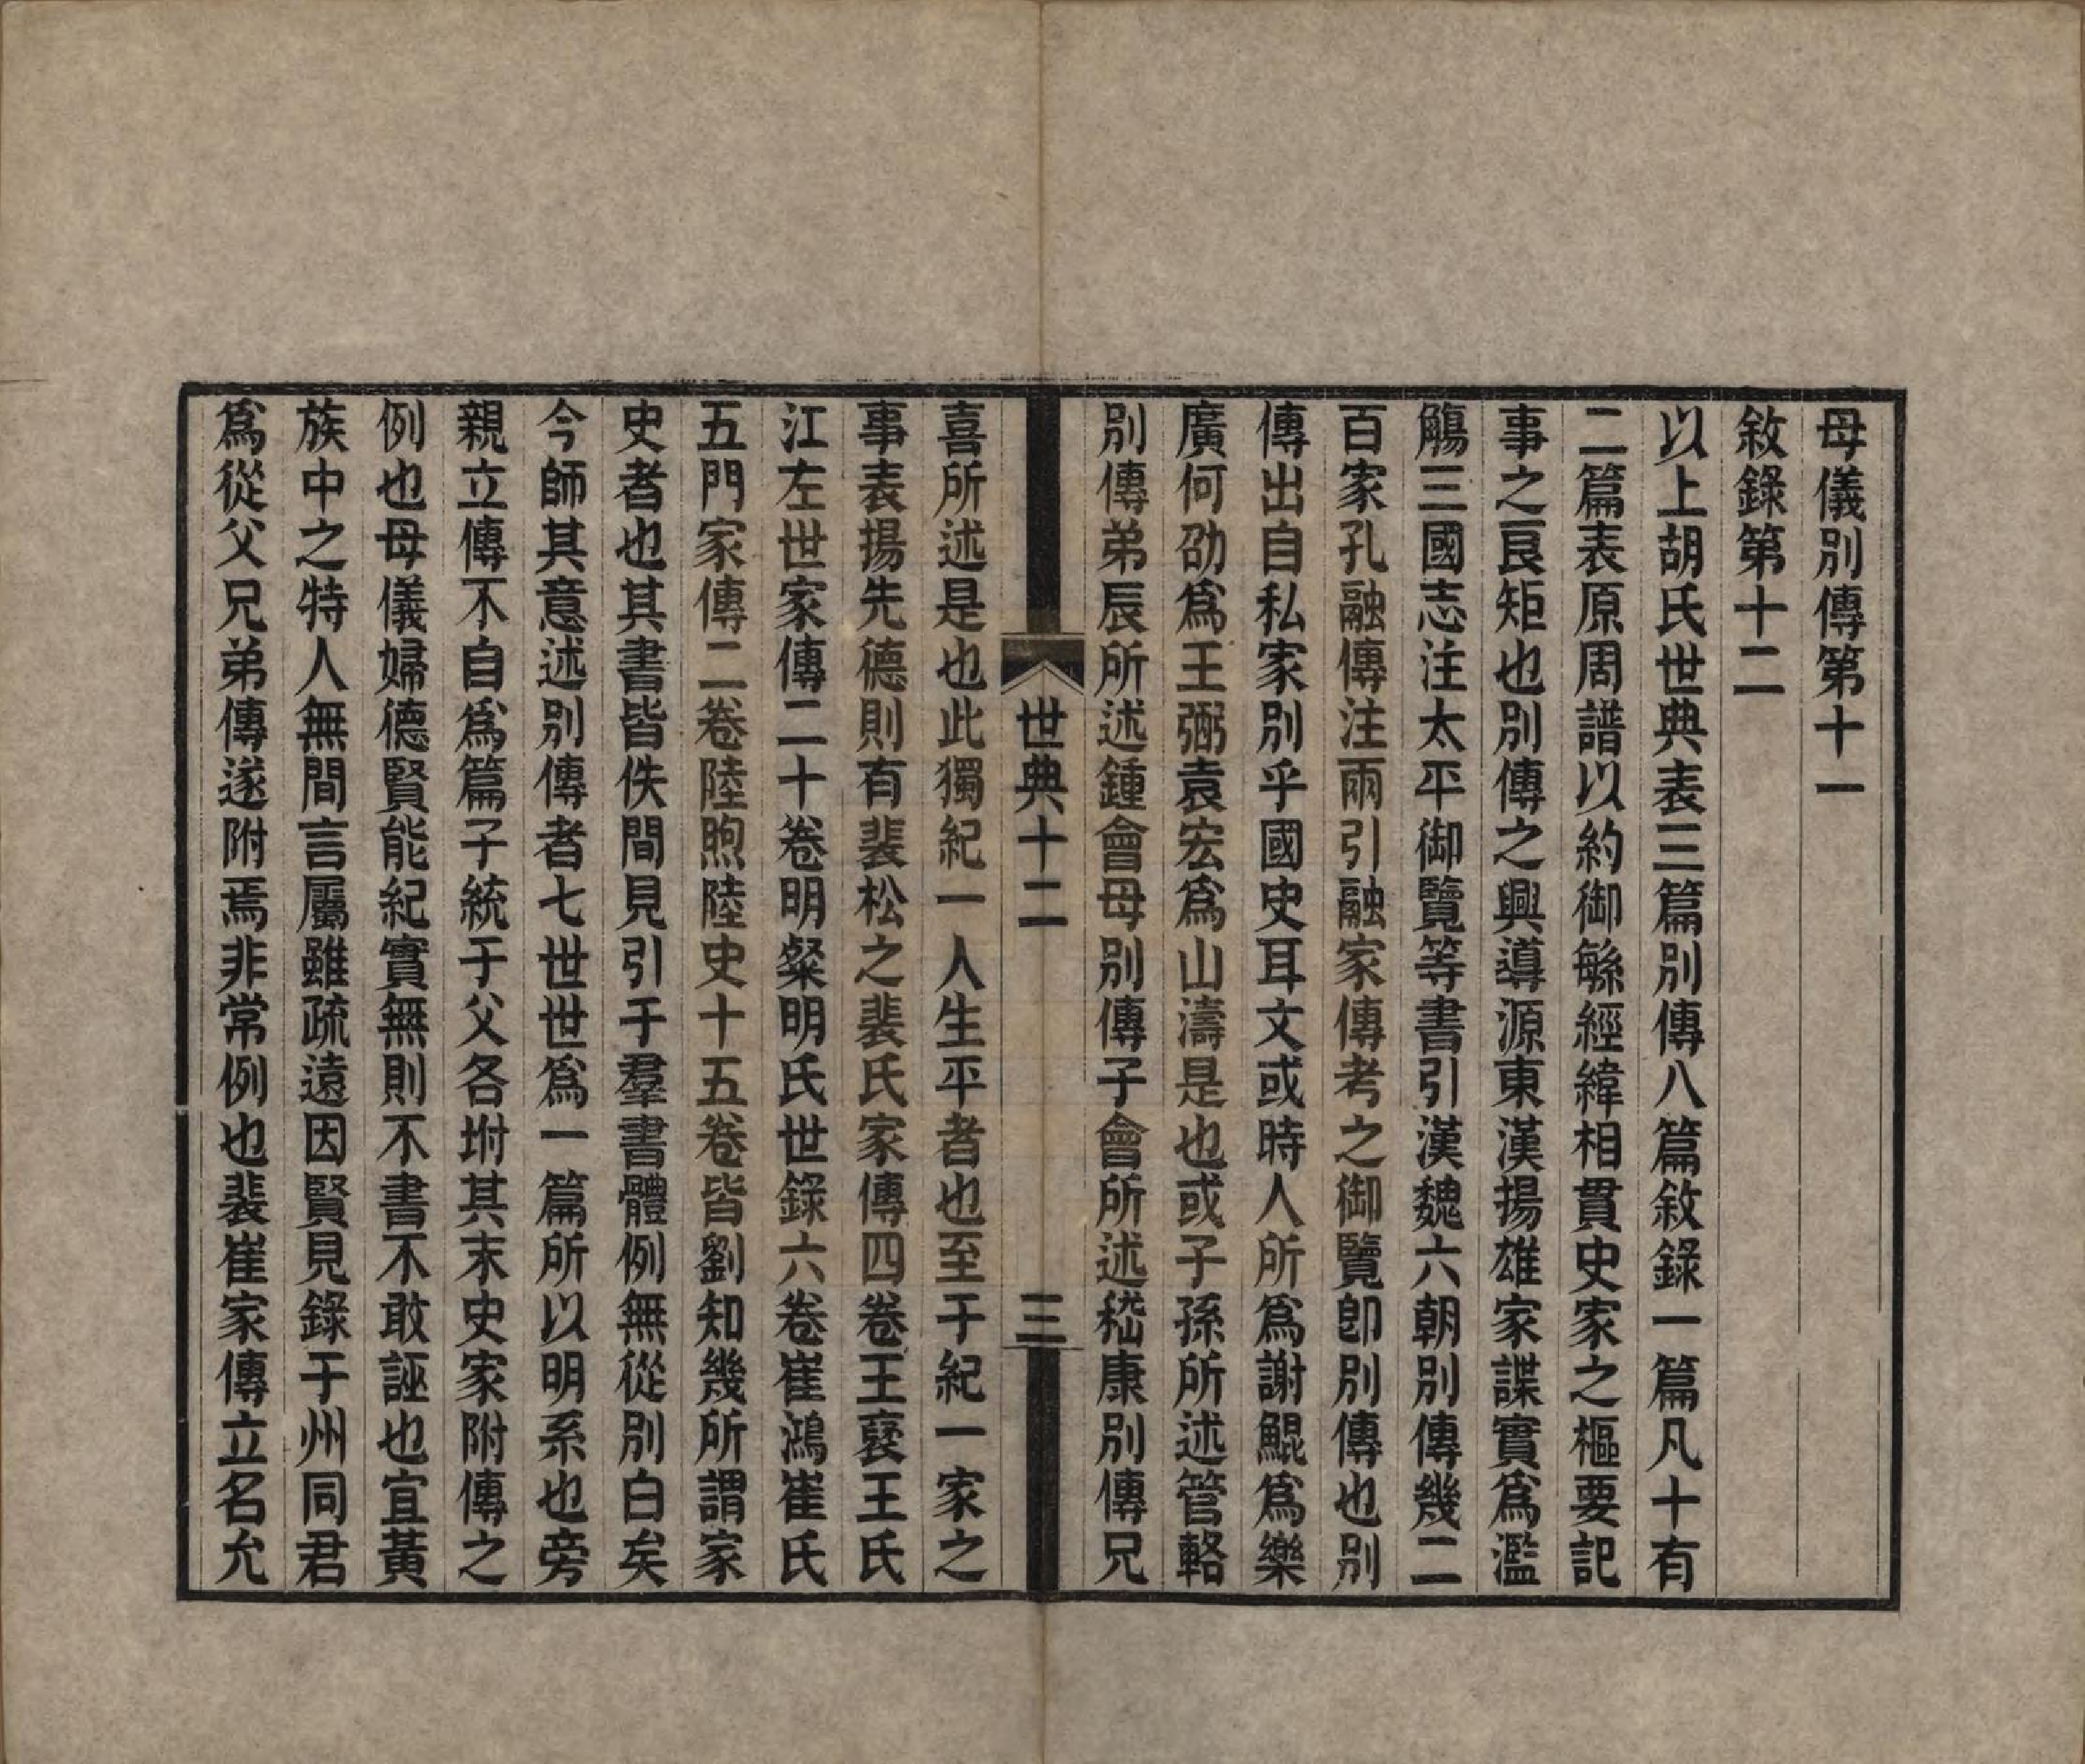 母儀別傳第十一
敘錄第十二
以上胡氏世典表三篇別傳八篇敘錄一篇凡十有
二篇表原周譜以約御緐經緯相貫史家之樞要記
事之良矩也別傳之興導源東漢揚雄家諜實爲濫
觴三國志注太平御覽等書引漢魏六朝別傳幾二
百家孔融傳注兩引融家傳考之御覽卽別傳也別
傳出自私家別乎國史耳文或時人所爲謝鯤爲樂
廣何劭爲王弼袁宏爲山濤是也或子孫所述管輅
別傳弟辰所述鍾會母別傳子會所述嵇康別傳兄
世典十二 三
喜所述是也此獨紀一人生平者也至于紀一家之
事表揚先德則有裴松之裴氏家傳四卷王襃王氏
江左世家傳二十卷明粲明氏世錄六卷崔鴻崔氏
五門家傳二卷陸煦陸史十五卷皆劉知幾所謂家
史者也其書皆佚間見引于羣書體例無從別白矣
今師其意述別傳者七世世爲一篇所以明系也旁
親立傳不自爲篇子統于父各坿其末史家附傳之
例也母儀婦德賢能紀實無則不書不敢誣也宜黃
族中之特人無間言屬雖疏遠因賢見錄于州同君
爲從父兄弟傳遂附焉非常例也裴崔家傳立名允